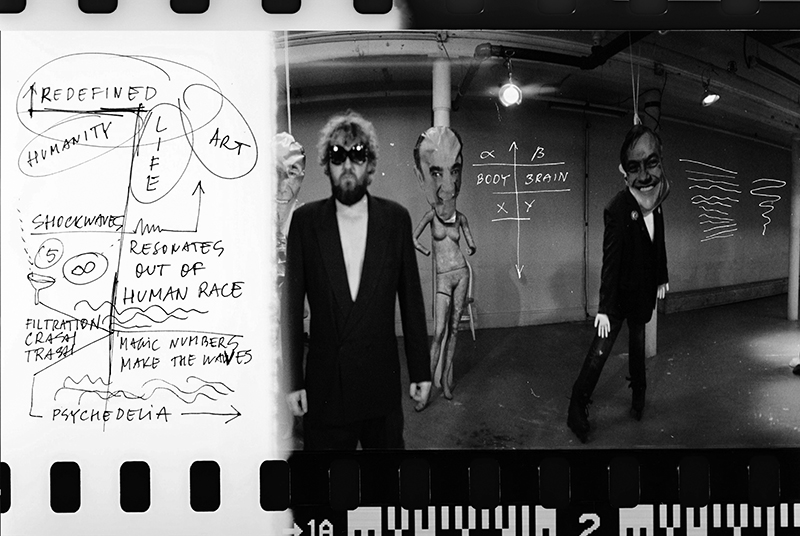 REDEFINED
HUMANITY
LIFE
ART
SHOCKWAVES
5
∞
RESONATES
OUT OF
HUMAN RACE
FILTRATION
CRASH
TRASH
MAGIC NUMBERS
MAKE THE WAVES
PSYCHEDELIA
α β
BODY BRAIN
X Y
1A 2